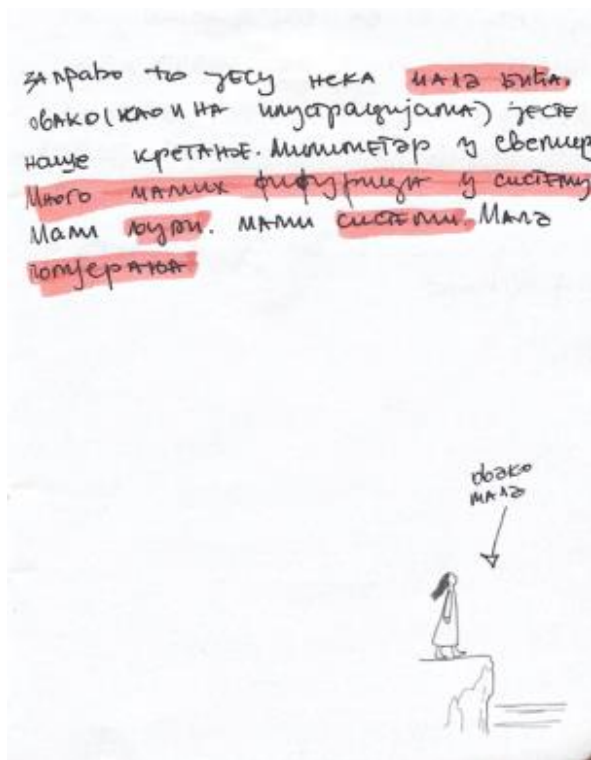 заправо то јесу нека мала бића.
овако (као и на илустрацијама) јесте
наше кретање. Милиметар у свемиру
Много малих фифурица у систему
Мали људи. мали системи. Мала
померања
овако
мала